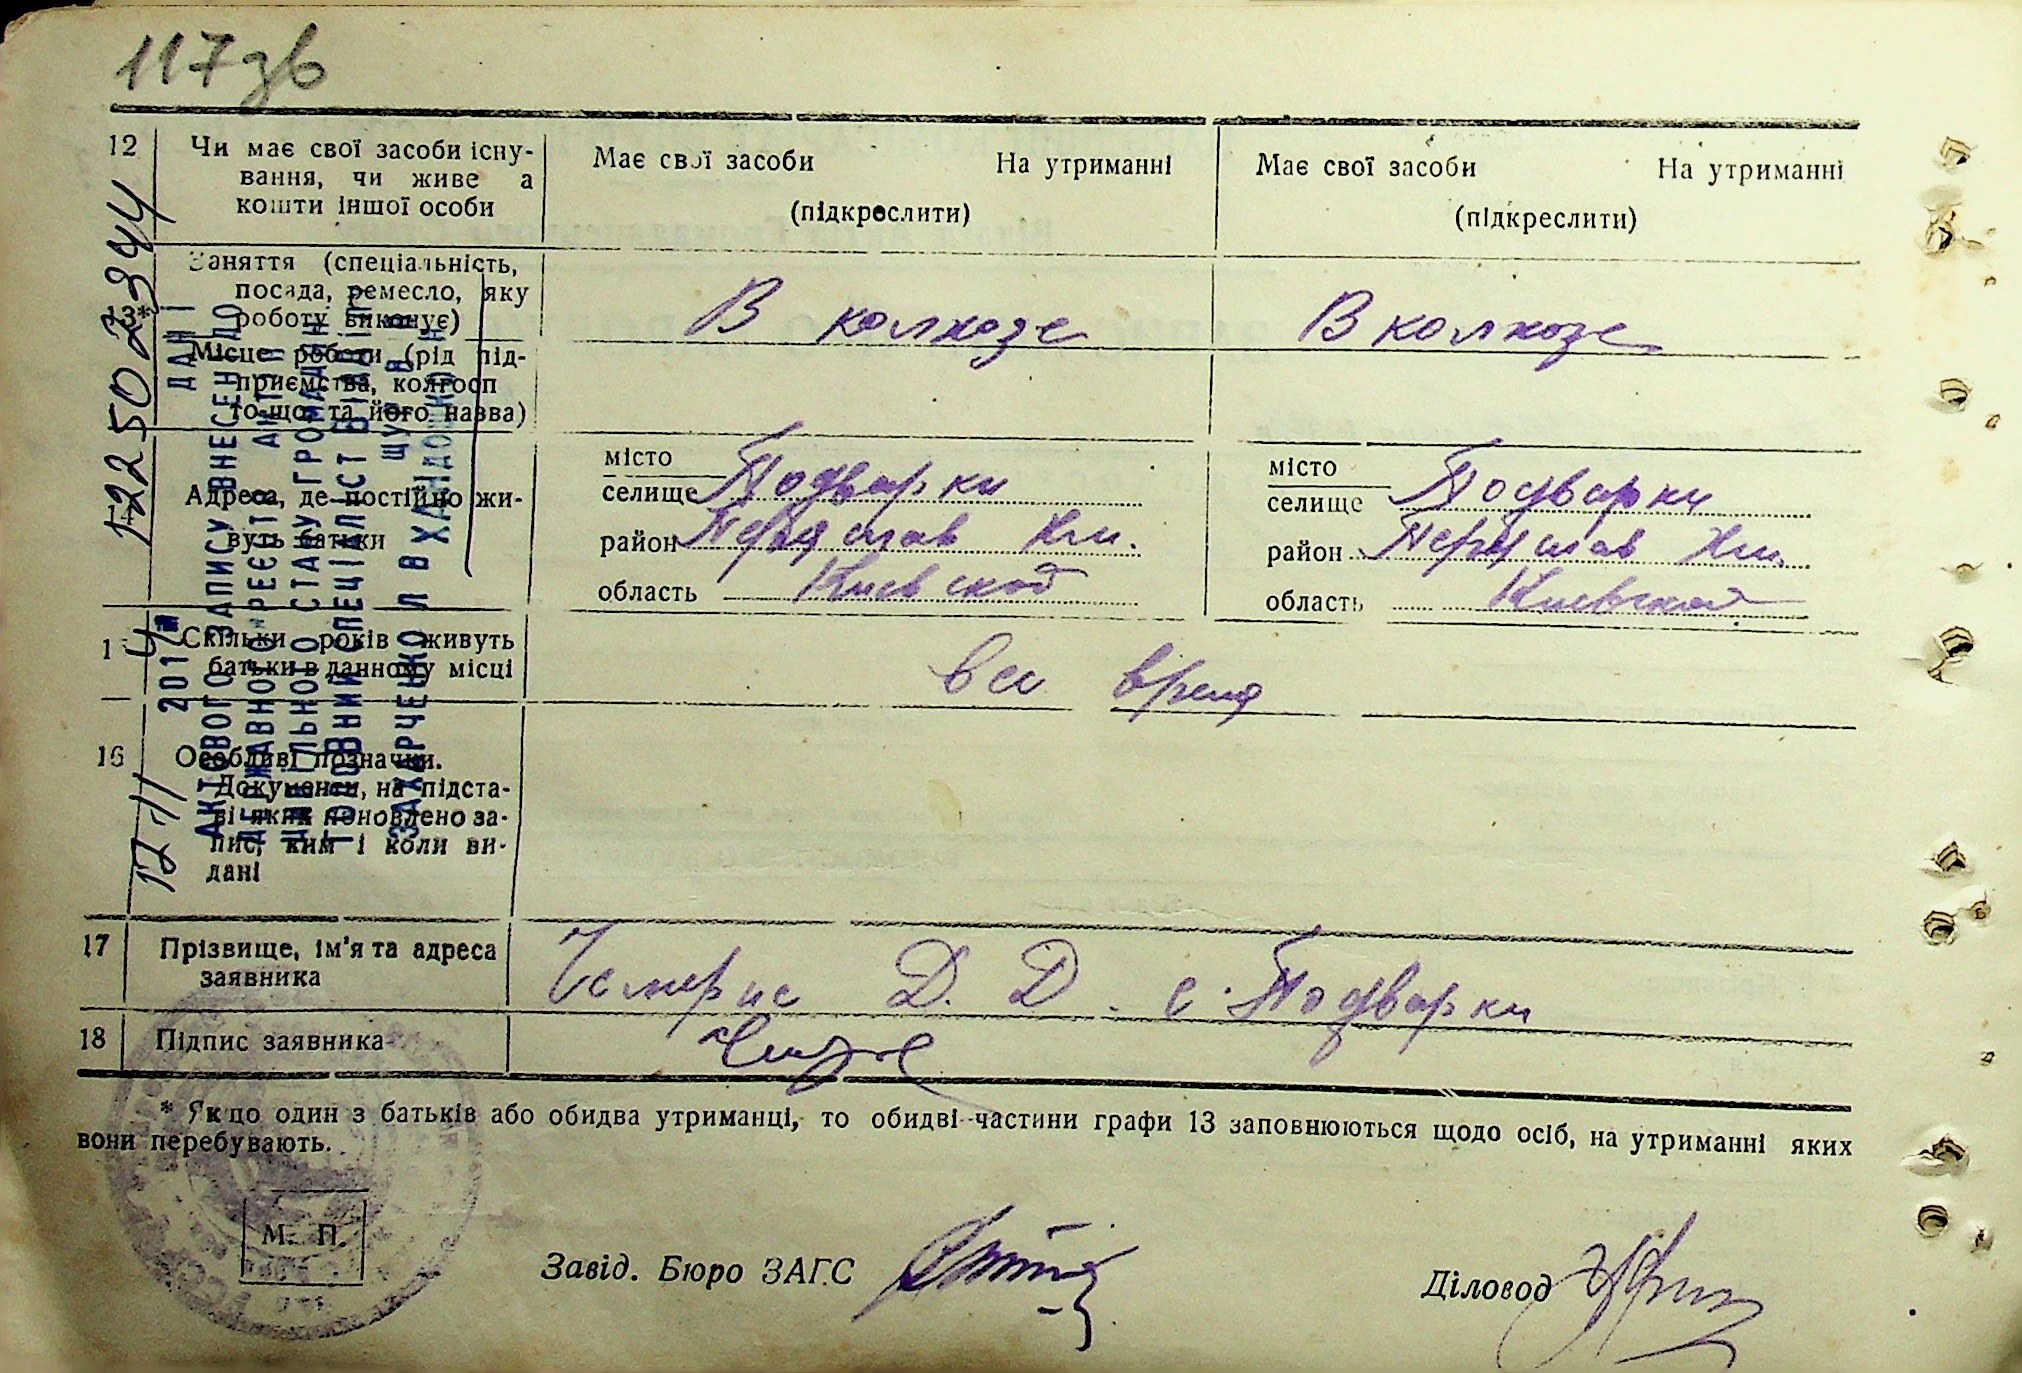 117зв
12 Чи має свої засоби існу-
вання, чи живе а
кошти іншої особи
Має свої засоби На утриманні
(підкреслити)
Має свої засоби На утриманні
(підкреслити)
13*
Заняття (спеціальність,
посада, ремесло, яку
роботу виконує)
В колхозе
В колхозе
Місце роботи (рід під-
приємства, колгосп
то-що, та його назва)
Адреса, де постійно жи-
вуть батьки
місто
селище Подварки
район Переяслав Хм.
область Киевской
місто
селище Подварки
район Переяслав Хм.
область Киевской
Скільки років живуть
батьки в данному місці
все время
16 Особливі позначки.
Документи, на підста-
ві яких поновлено за-
пис, ким і коли ви-
дані
17 Прізвище, ім'я та адреса
заявника
Чемерис Д. Д. с. Подварки
18 Підпис заявника
* Якщо один з батьків або обидва утриманці, то обидві частини графи 13 заповнюються щодо осіб, на утриманні яких
вони перебувають.
М. П.
Завід. Бюро ЗАГС
Діловод
12250 2344
17 11 2017
ДАНІ
АКТОВОГО ЗАПИСУ ВНЕСЕНІ ДО
ДЕРЖАВНОГО РЕЄСТРУ АКТІВ
ЦИВІЛЬНОГО СТАНУ ГРОМАДЯН
ГОЛОВНИЙ СПЕЦІАЛІСТ ВІДДІЛУ
ЗАХАРЧЕНКО Л В